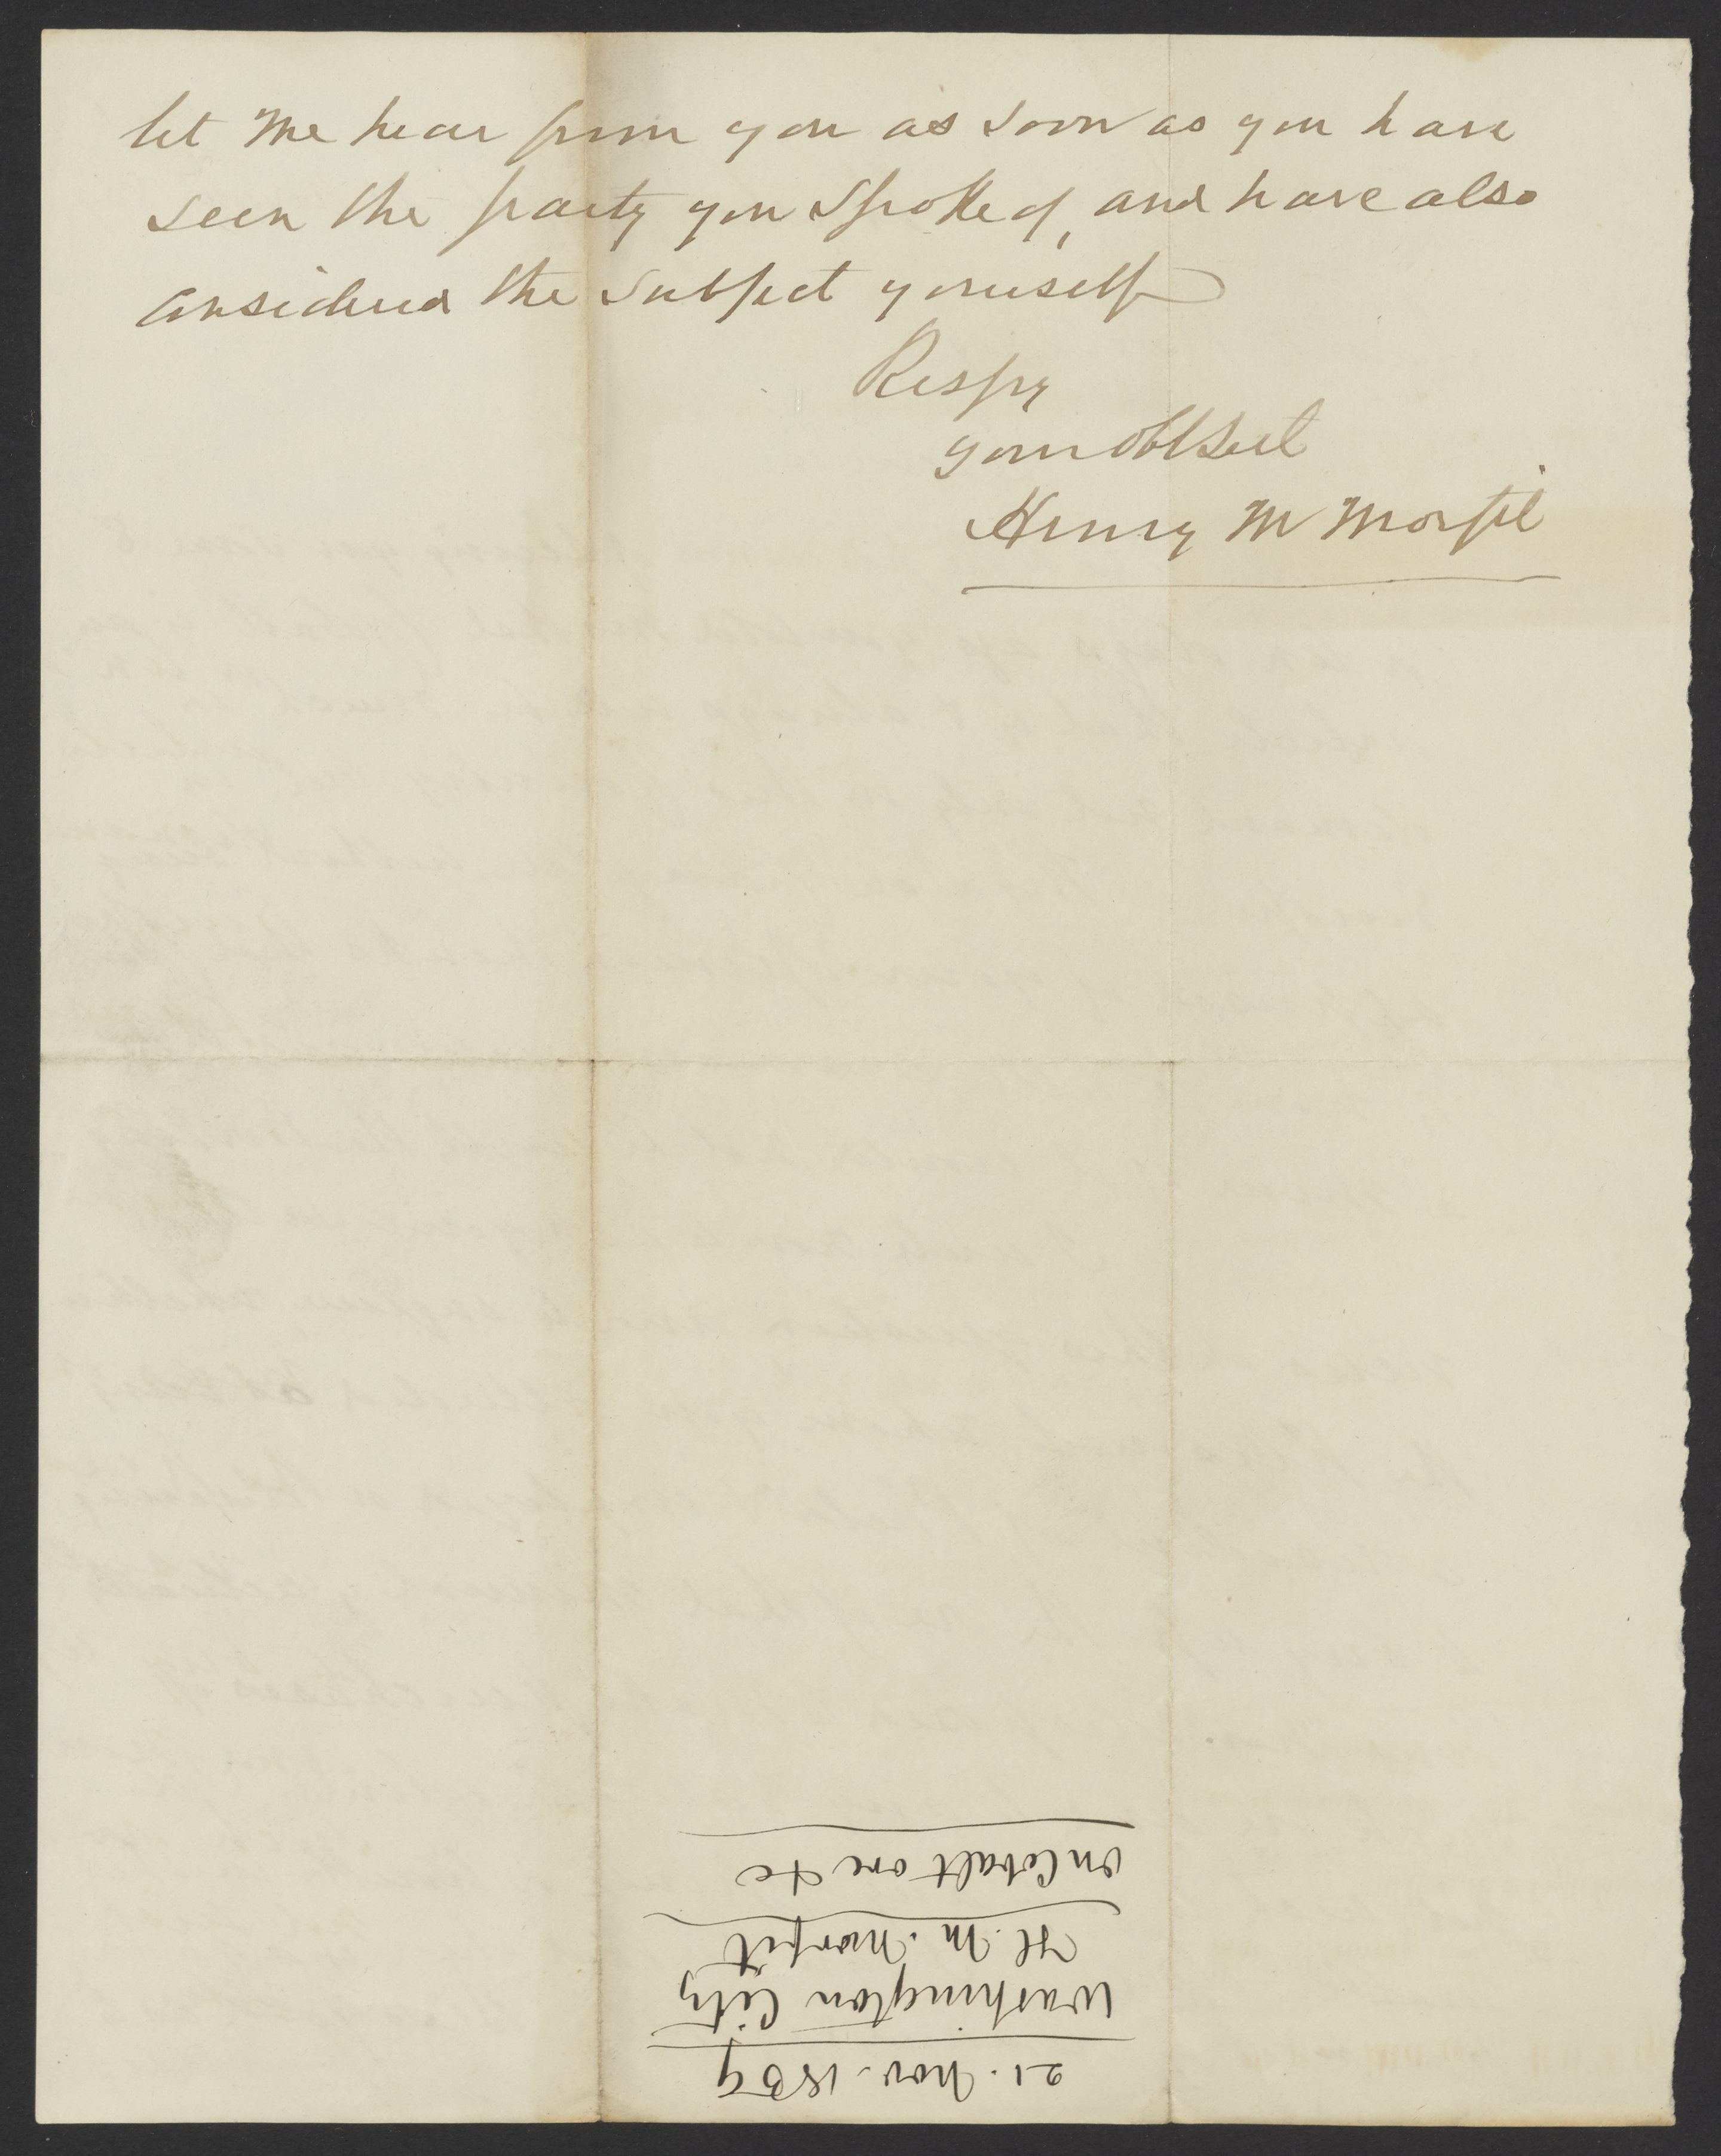 let me hear from you as soon as you have
seen the party you spoke of, and have also
considered the subject yourself
Respy
your obt Sevt
Henry M Morfit
21. Nov. 1859
Washington City
H. M. Morfit
on Cobalt ore &c